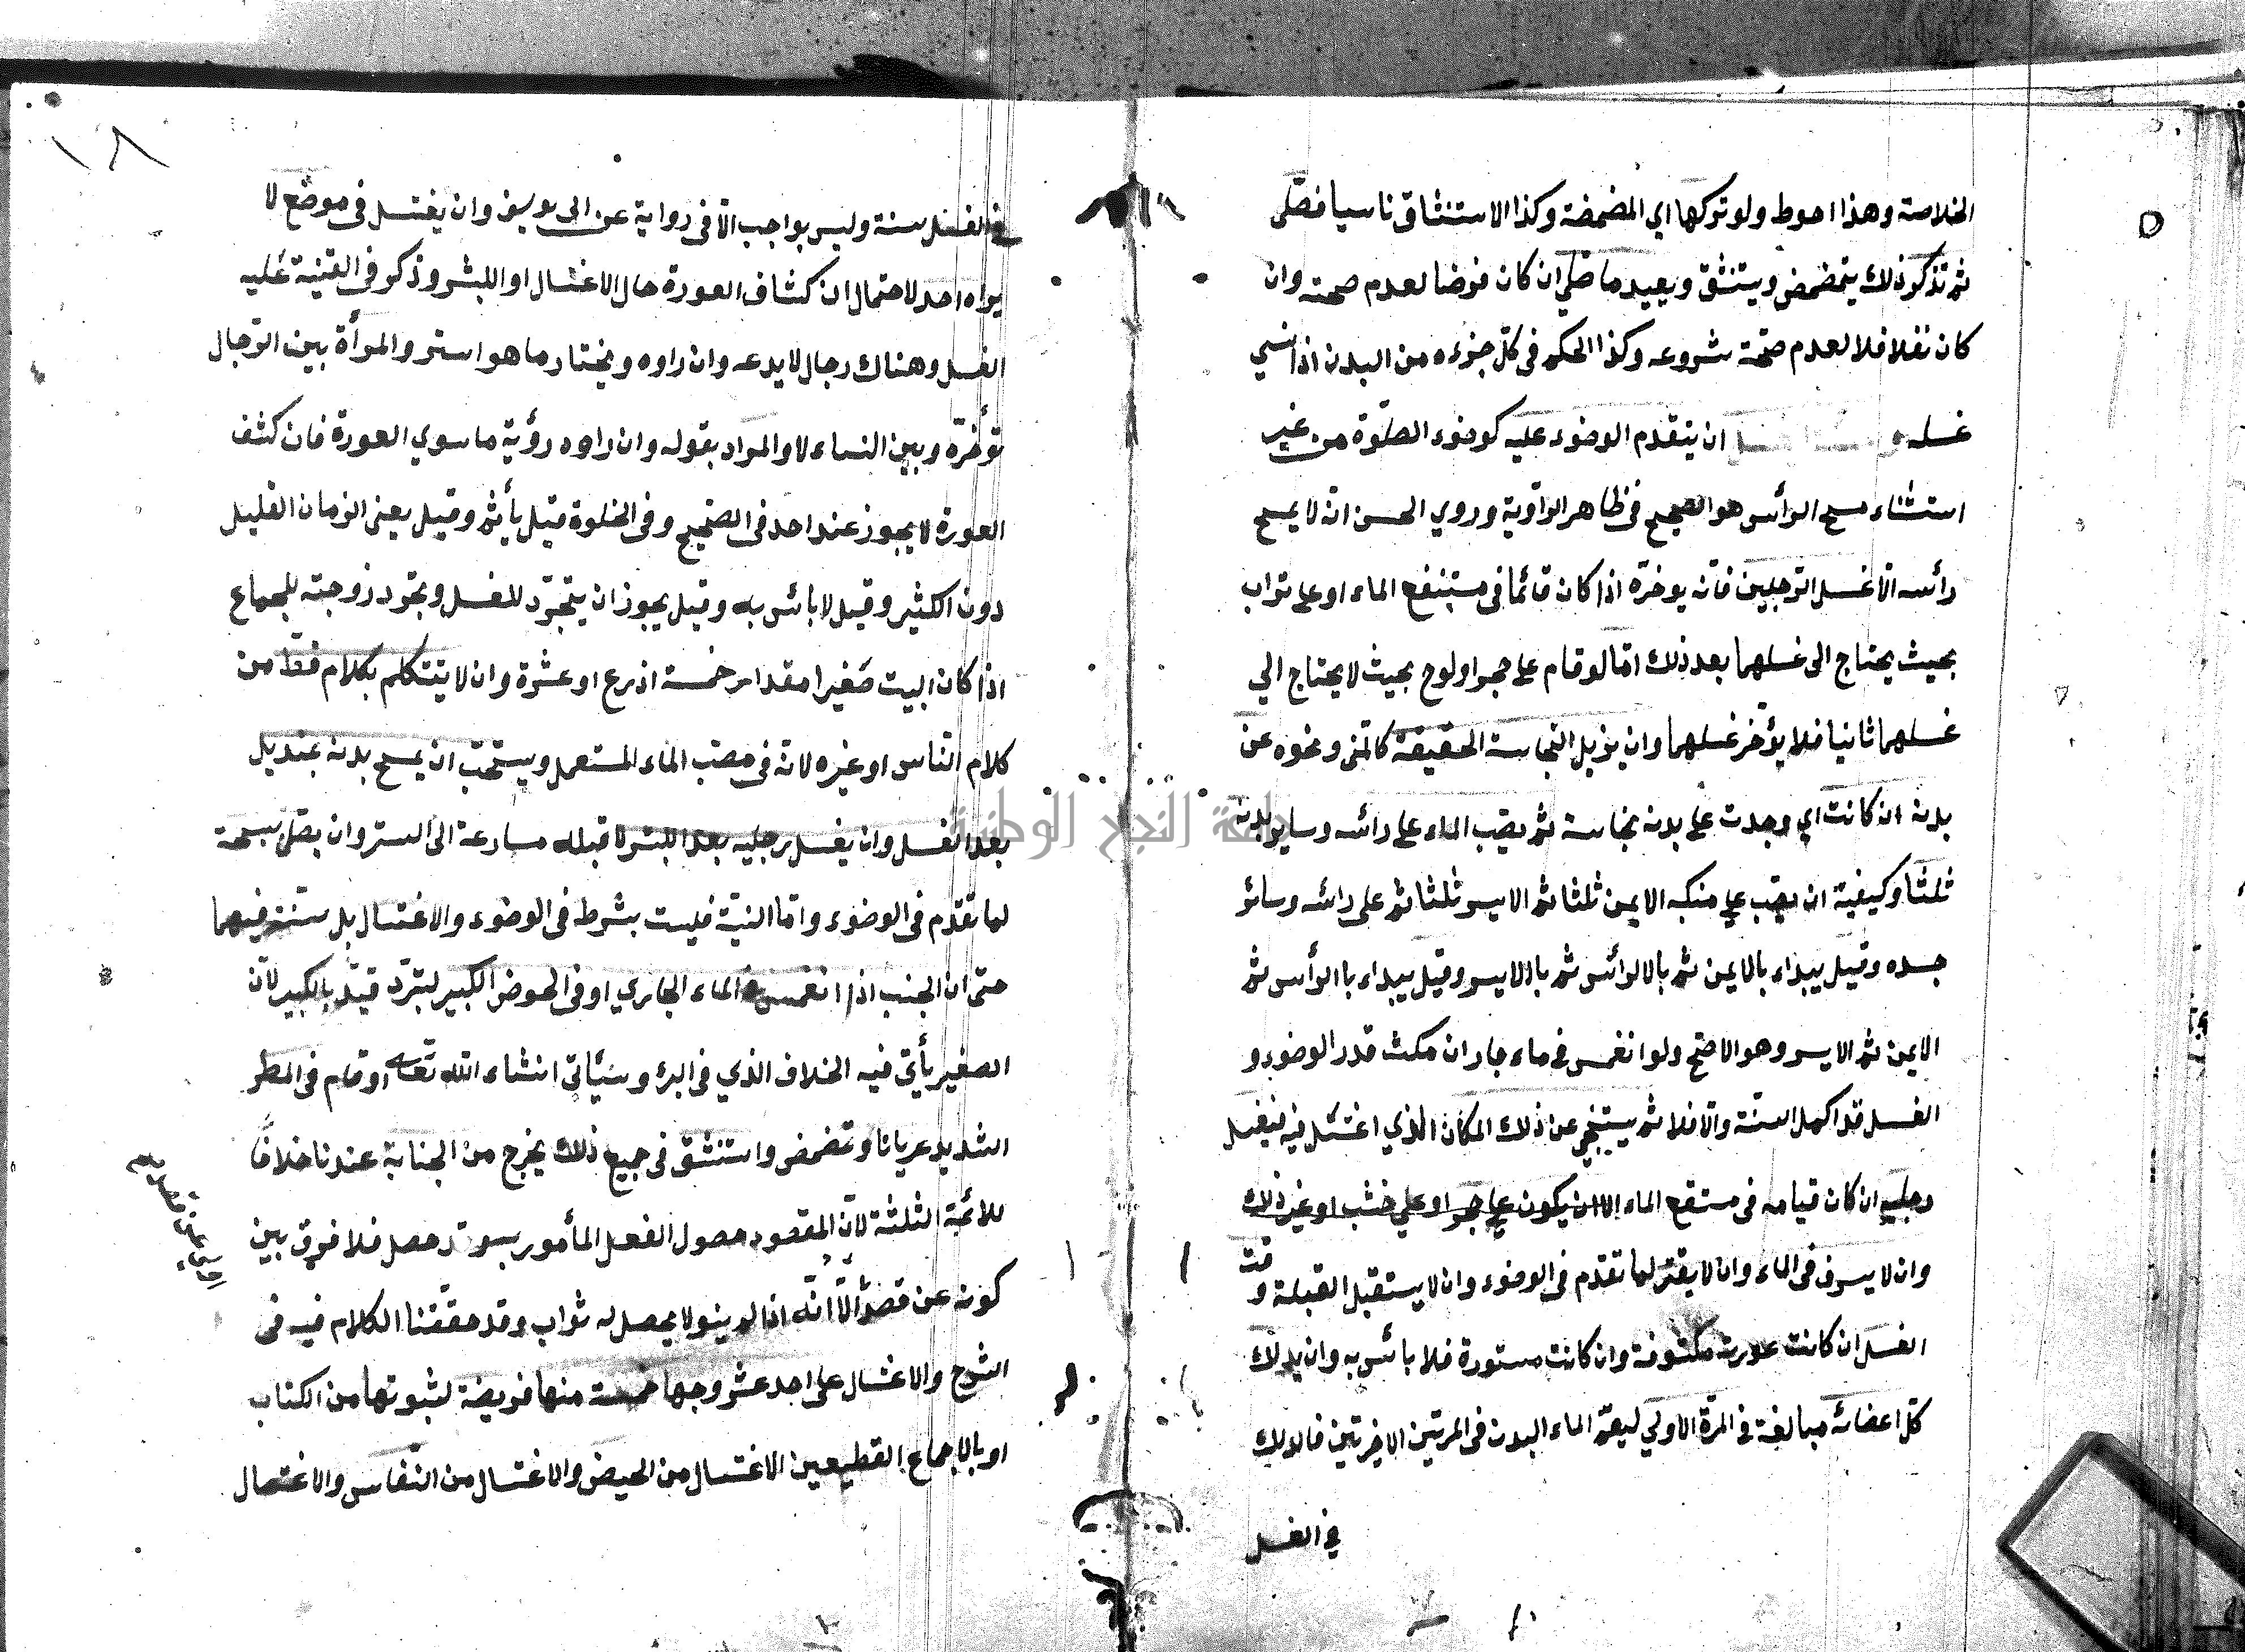 الخلاصة وهذا احوط ولو تركها اي المضمضة وكذا الاستنشاق ناسيا فصلّى
ثم تذكر ذلك يتمضمض ويستنشق ويعيد ما صلي ان كان فرضا لعدم صحته وان
كان نفلا فلا لعدم صحة شروعه وكذا الحكم فى كلّ جزء من البدن اذا نسي
غسله ان يتقدم الوضوء عليه كوضوء الصلوة من غير
استثناء مسح الرأس هو الصحيح فى ظاهر الرّواية وروي الحسن انّه لا يمسح
رأسه الّا غسل الرّجلين فانّه يوخرّه اذا كان قائما فى مستنقع الماء او على تراب
بحيث يحتاج الى غسلهما بعد ذلك امّا لو قام على حجر او لوح بحيث لا يحتاج الي
غسلهما ثانيا فلا يؤخّر غسلهما وان يزيل النجاسة الحقيقة كالمنى ونحوه عن
بدنه ان كانت اي وجدت على بدنه نجاسة ثم يصّب الماء على رائسه وساير بدنه
ثلثا وكيفية ان يصّب على منكبه الايمن ثلثا ثم الايسر ثلثا ثم على رائسه وسائر
جسده وقيل يبداء بالايمن ثم بالرائس ثم بالايسر وقيل يبداء بالرأس ثم
الايمن ثم الايسر وهو الاصح ولو انغمس فى ماء جار ان مكث قدر الوضوء و
الغسل فقد اكمل السنّة والّا فلا ثم يتنحى عن ذلك المكان الذي اغتسل فيه فيغسل
رجليه ان كان قيامه فى مستقع الماء الا ان يكون على حجر او على خشب او غير ذلك
وان لا يسرف فى الماء وان لا يقتر لما تقدّم فى الوضوء وان لا يستقبل القبلة وقت
الغسل ان كانت عورته مكشوفة وان كانت مستورة فلا بائس به وان يدلك
كلّ اعضائه مبالغة فى المرّة الاولي ليعمّ الماء البدن فى المرتين الاخرتين فالدلك
في الغسل
في الغسل سنة وليس بواجب الّا فى رواية عن ابى يوسف وان يغتسل فى موضع لا
يراه احد لاحتمال انكشاف العورة حال الاغتسال او اللبس وذكر فى القنية عليه
الغسل وهناك رجال لا يدعه وان راوه ويختار ما هو استر والمرأة بين الرّجال
تؤخرّه وبين النساء لا والمراد بقوله وان راوه رؤية ما سوي العورة فان كشف
العورة لا يجوز عند احد فى الصّحيح وفى الخلوة قيل يأثم وقيل يعنى الزمان القليل
دون الكثير وقيل لا بائس به وقيل يجوز ان يتجرّد للغسل وتجرّد زوجته للجماع
اذا كان البيت صغيرا مقدار خمسة اذرع او عشرة وان لا يتكلم بكلام قطّ من
كلام النّاس او غيره لانّه فى مصّب الماء المستعمل ويستحّب ان يمسح بدنه بمنديل
بعد الغسل وان يغسل رجليه بعد اللبس لا قبله مسارعة الى الستر وان يصلّي سبحة
لما تقدّم فى الوضوء وامّا النيّة فليست بشرط فى الوضوء والاغتسال بل سنة فيهما
حتى ان الجنب اذا انغمس فى الماء الجاري او فى الحوض الكبير لتبرّد قيّد بالكبير لانّ
الصغير يأتى فيه الخلاف الذي فى البئر وسيأتى انشاء الله تعالى او قام فى المطر
الشديد عريانا وتمضمض واستنشق فى جميع ذلك يخرج من الجنابة عندنا خلافًا
للائمة الثلثة لانّ المقصود حصول الفعل المأمور به وقد حصل فلا فرق بين
كونه عن قصد الّا انّه اذا لم ينو لا يحصل له ثواب وقد حققنا الكلام فيه فى
الشرح والاغتسال على احد عشر وجها خمسة منها فريضة لثبوتها من الكتاب
او بالاجماع القطيعين الاغتسال من الحيض والاغتسال من النّفاس والاغتسال
١٨
جامعة النجاح الوطنية